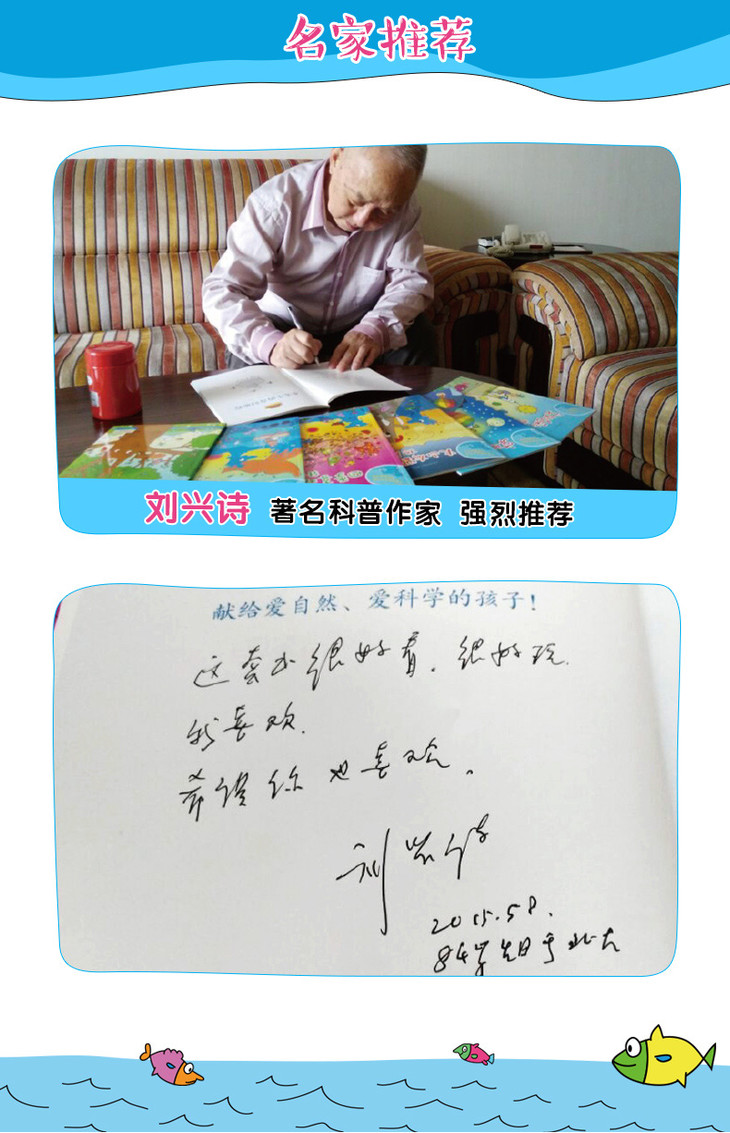 名家推荐
刘兴诗 著名科普作家 强烈推荐
献给爱自然、爱科学的孩子!
这套书很好看,很好玩.
我喜欢.
希望你也喜欢。
刘兴诗
2015.5.8.
84岁 于北大